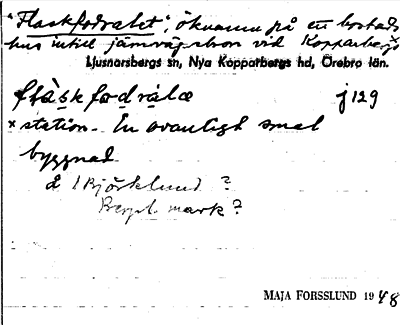 "Flaskfodralet", öknamn på en bostads
hus intill järnvägsbron vid Kopparbergs
Ljusnarsbergs sn, Nya Kopparbergs hd, Örebro län.
flåskfodrälæ j 129
× station. En ovanligt smal
byggnad.
å 1 Björklund ?
Bergsl. mark ?
MAJA FORSSLUND 1948